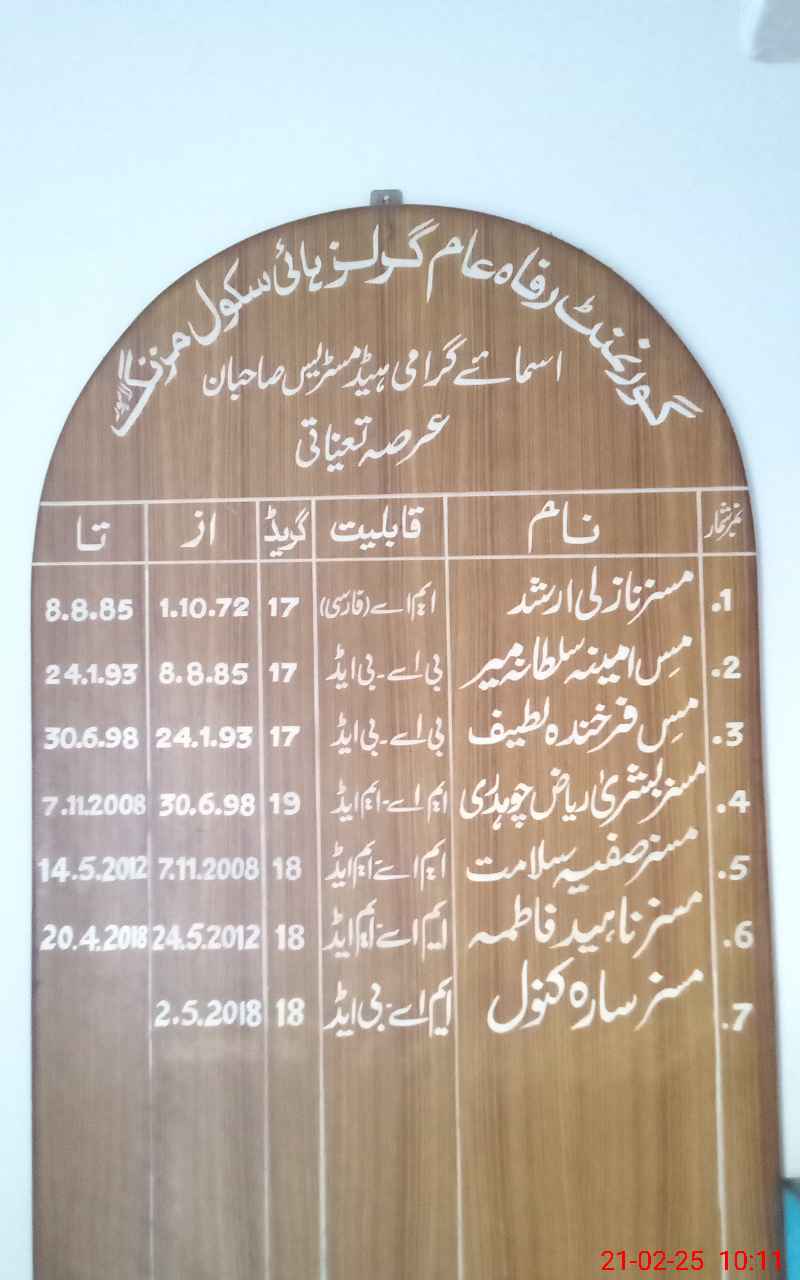 گورنمنٹ رفاہ عام گرلز ہائی سکول مزنگ لاہور
اسمائے گرامی ہیڈمسٹریس صاحبان
عرصہ تعیناتی
نمبرشمار نام قابلیت گریڈ از تا
1. مسز نازلی ارشد ایم اے (فارسی) 17 1.10.72 8.8.85
2. مس امینہ سلطانہ میر بی اے - بی ایڈ 17 8.8.85 24.1.93
3. مس فرخندہ لطیف بی اے - بی ایڈ 17 24.1.93 30.6.98
4. مسز بشریٰ ریاض چوہدری ایم اے - ایم ایڈ 19 30.6.98 7.11.2008
5. مسز صفیہ سلامت ایم اے - ایم ایڈ 18 7.11.2008 14.5.2012
6. مسز ناہید فاطمہ ایم اے - ایم ایڈ 18 24.5.2012 20.4.2018
7. مسز سارہ کنول ایم اے - بی ایڈ 18 2.5.2018
21-02-25 10:11